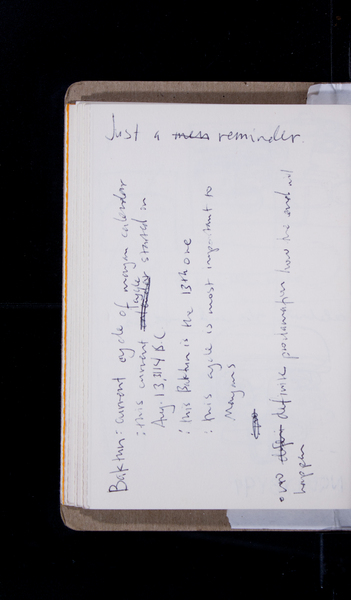 Just a reminder.
Baktun: current cycle of mayan calendar
: this current cycle started in
Aug. 13, 3114 BC
: this Baktun is the 13th one
: this cycle is most important to
Mayans
definite proclamation how the end will
happen